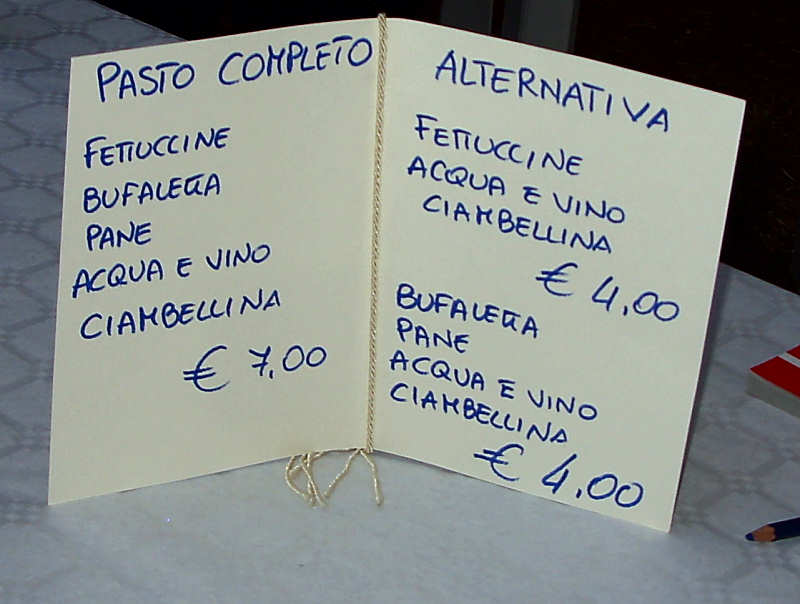 PASTO COMPLETO
FETTUCCINE
BUFALETTA
PANE
ACQUA E VINO
CIAMBELLINA
€ 7,00
ALTERNATIVA
FETTUCCINE
ACQUA E VINO
CIAMBELLINA
€ 4,00
BUFALETTA
PANE
ACQUA E VINO
CIAMBELLINA
€ 4,00